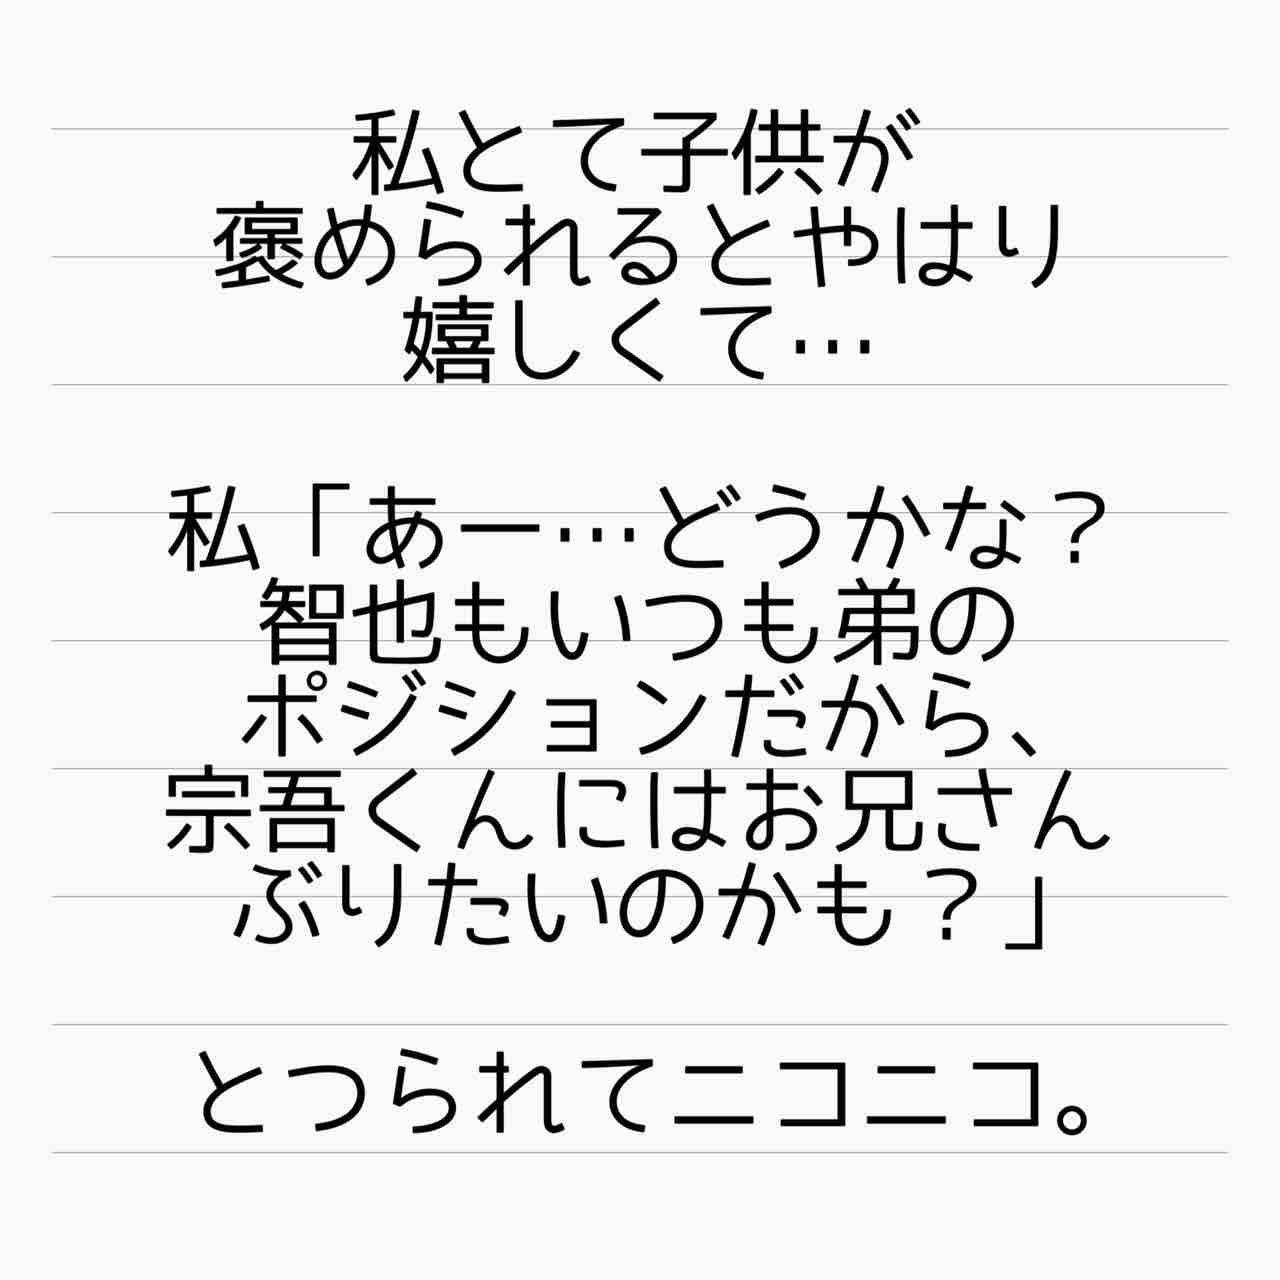 私とて子供が
褒められるとやはり
嬉しくて…
私「あー…どうかな？
智也もいつも弟の
ポジションだから、
宗吾くんにはお兄さん
ぶりたいのかも？」
とつられてニコニコ。